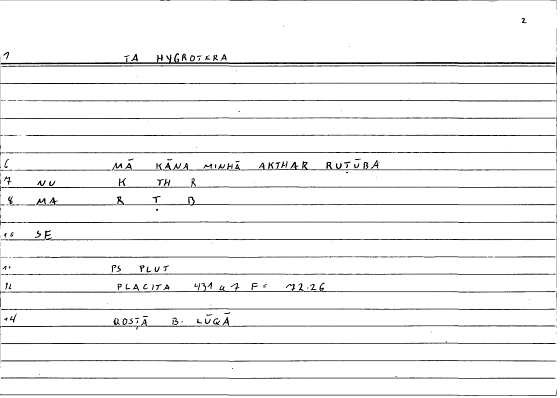 2
1 TA HYGROTERA
6 MĀ KĀNA MINHĀ AKTHAR RUṬŪBA
7 NU K TH R
8 MA R Ṭ B
10 SE
11 PS PLUT
12 PLACITA 431 a 7 F = 72.26
14 QOSṬĀ B. LŪQĀ